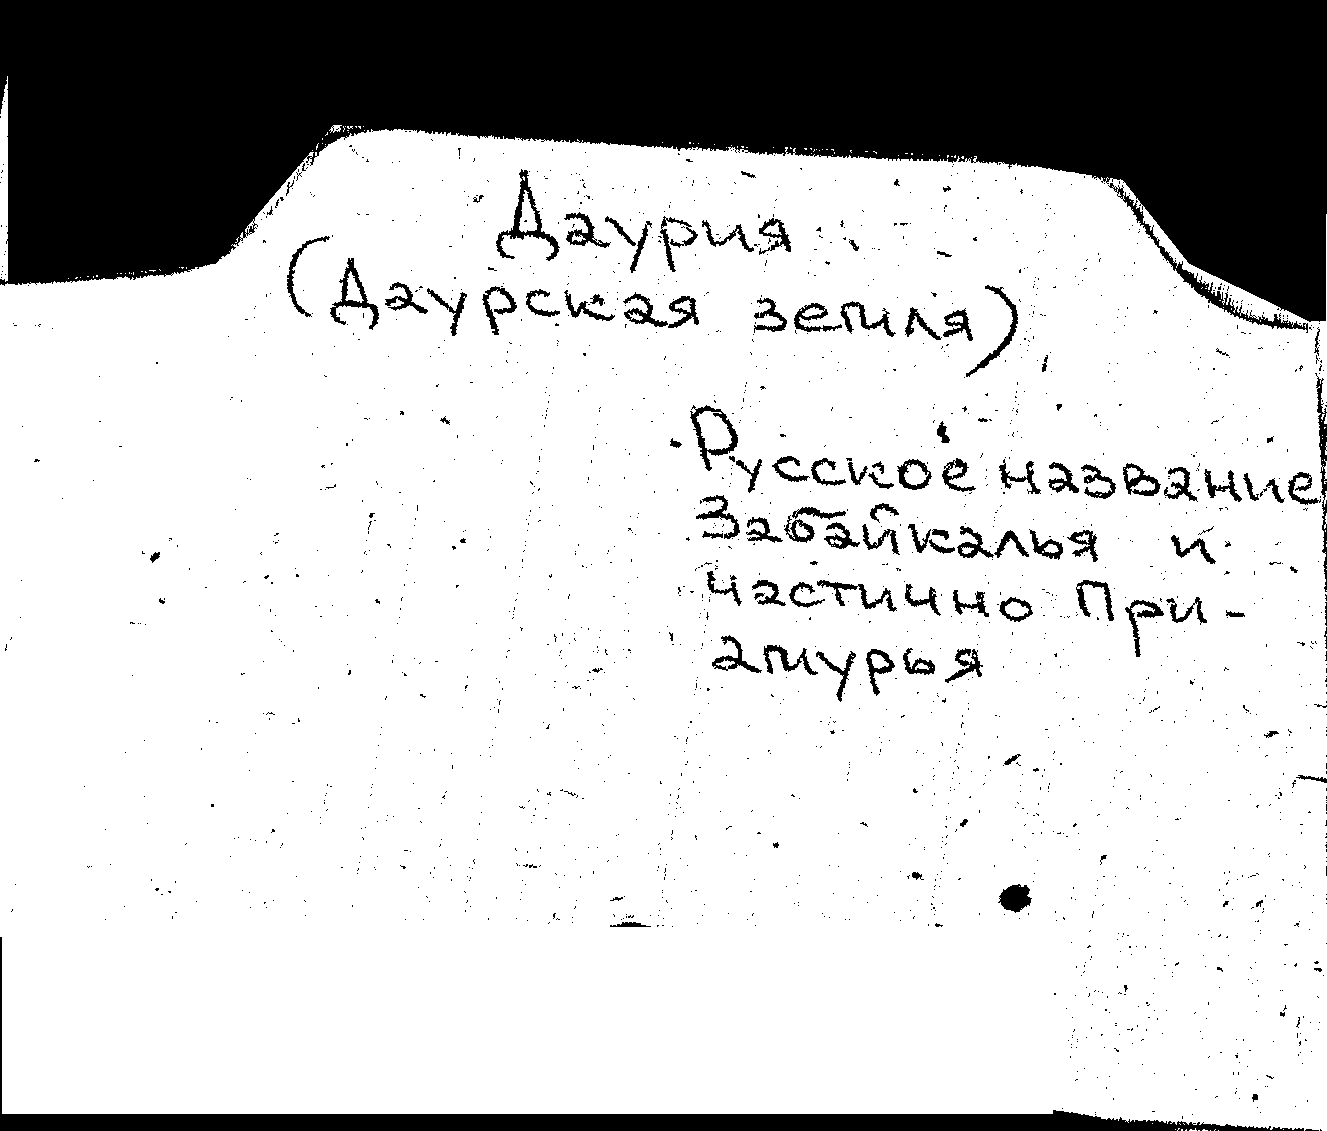 Даурия
(Даурская земля)
Русское название
Забайкалья и
частично При-
амурья